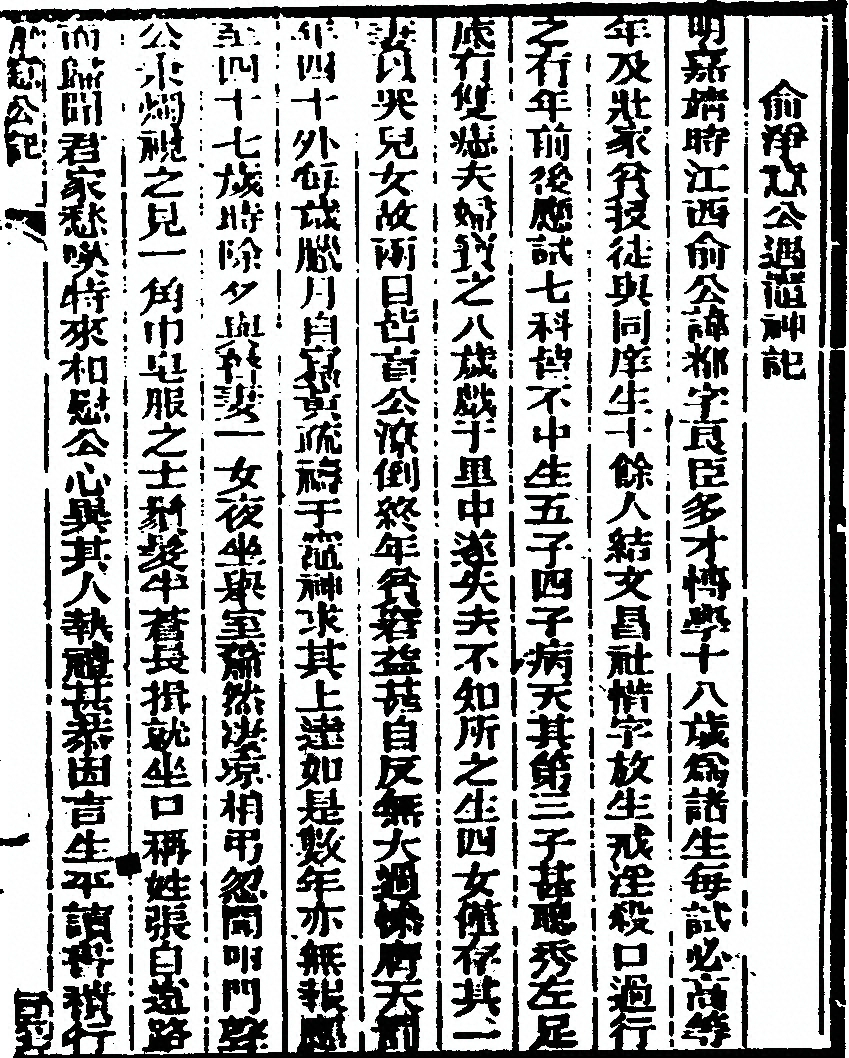 俞淨意公遇竈神記
明嘉靖時江西俞公諱都字良臣多才博學十八歲爲諸生每試必高等
年及壯家貧授徒與同庠生十餘人結文昌社惜字放生戒淫殺口過行
之有年前後應試七科皆不中生五子四子病夭其第三子甚聰秀左足
底有雙痣夫婦寶之八歲戲于里中遂失去不知所之生四女僅存其一
妻以哭兒女故兩目皆盲公潦倒終年貧窘益甚自反無大過慘膺天罰
年四十外每歲臘月自寫黃疏禱于竈神求其上達如是數年亦無報應
至四十七歲時除夕與瞽妻一女夜坐舉室蕭然淒凉相弔忽聞叩門聲
公秉燭視之見一角巾皂服之士鬚髮半蒼長揖就坐口稱姓張自遠路
而歸聞君家愁嘆特來相慰公心異其人執禮甚恭因言生平讀書積行
淨意公記